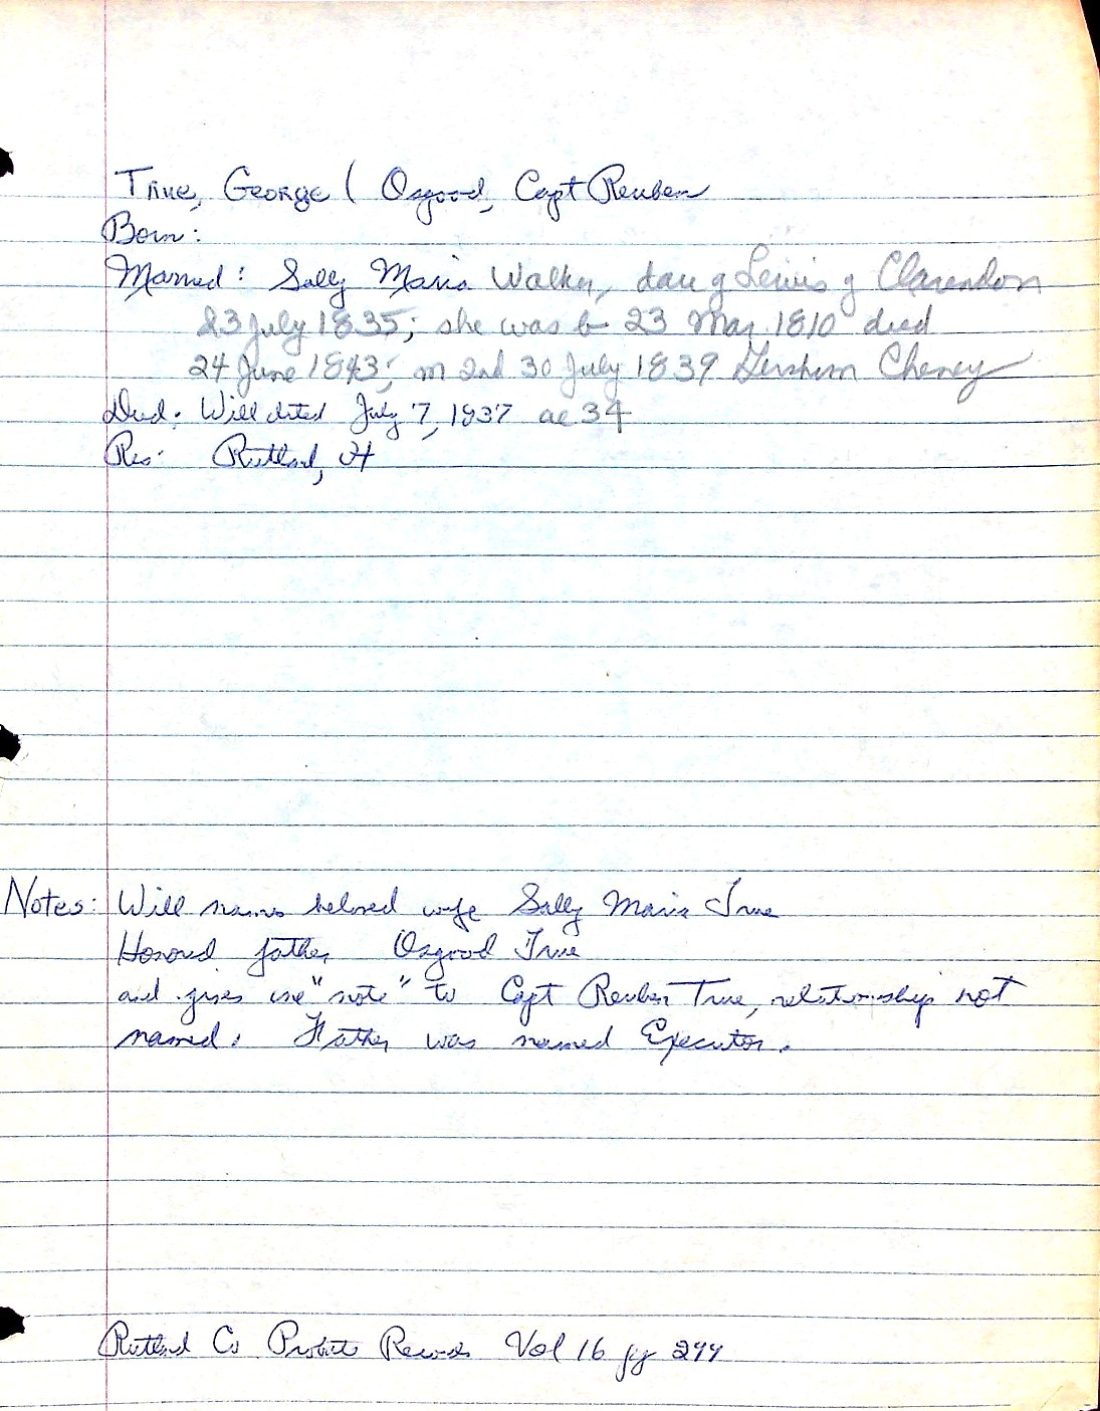 True, George ( Osgood, Capt Reuben
Born:
Married: Sally Maria Walker, dau of Lewis of Clarendon
23 July 1835; she was b 23 Mar 1810 died
24 June 1843; m 2nd 30 July 1839 Gershom Cheney
Died: Will dated July 7, 1837 ae 34
Res: Rutland, Vt
Notes: Will names beloved wife Sally Maria True
Honored father Osgood True
and gives one "note" to Capt Reuben True, relationship not
named. Father was named Executor.
Rutland Co Probate Records Vol 16 pg